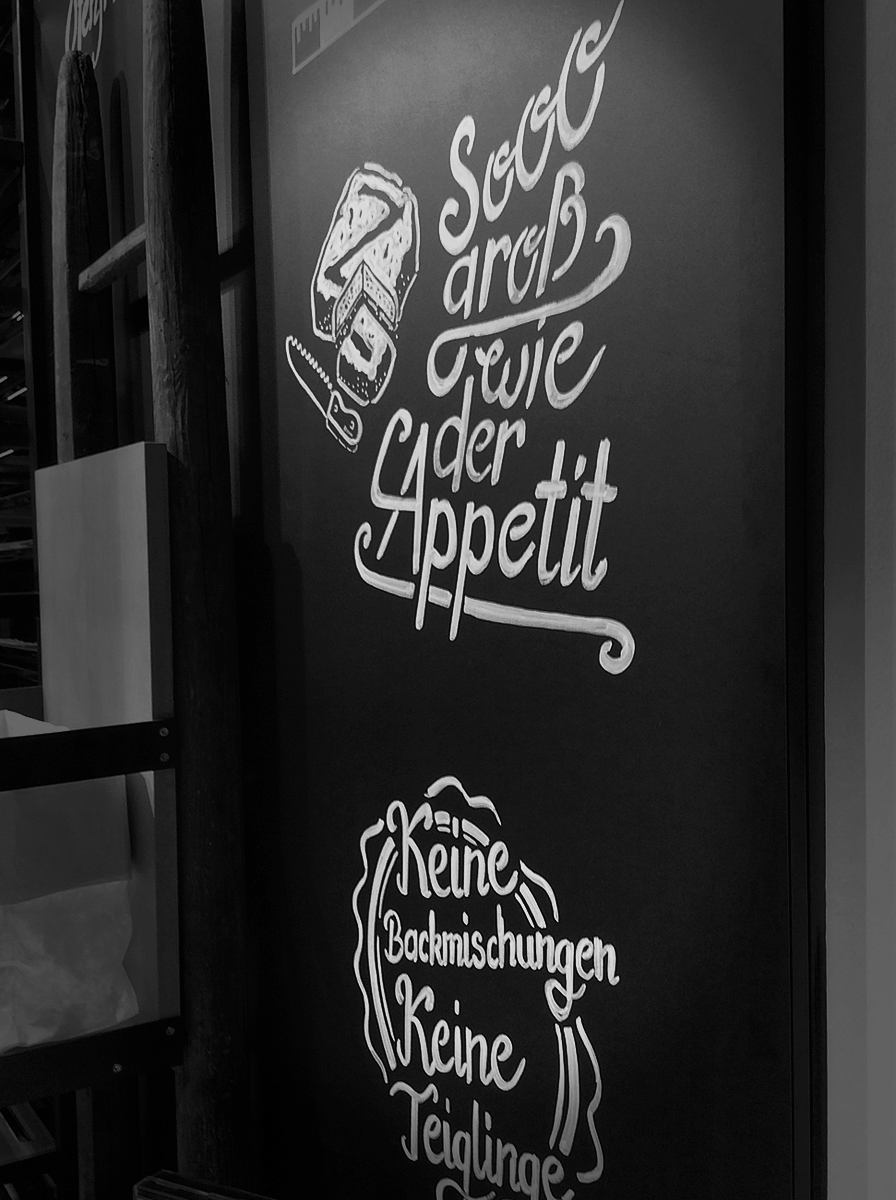 Sooo
groß
wie
der
Appetit
Keine
Backmischungen
Keine
Teiglinge